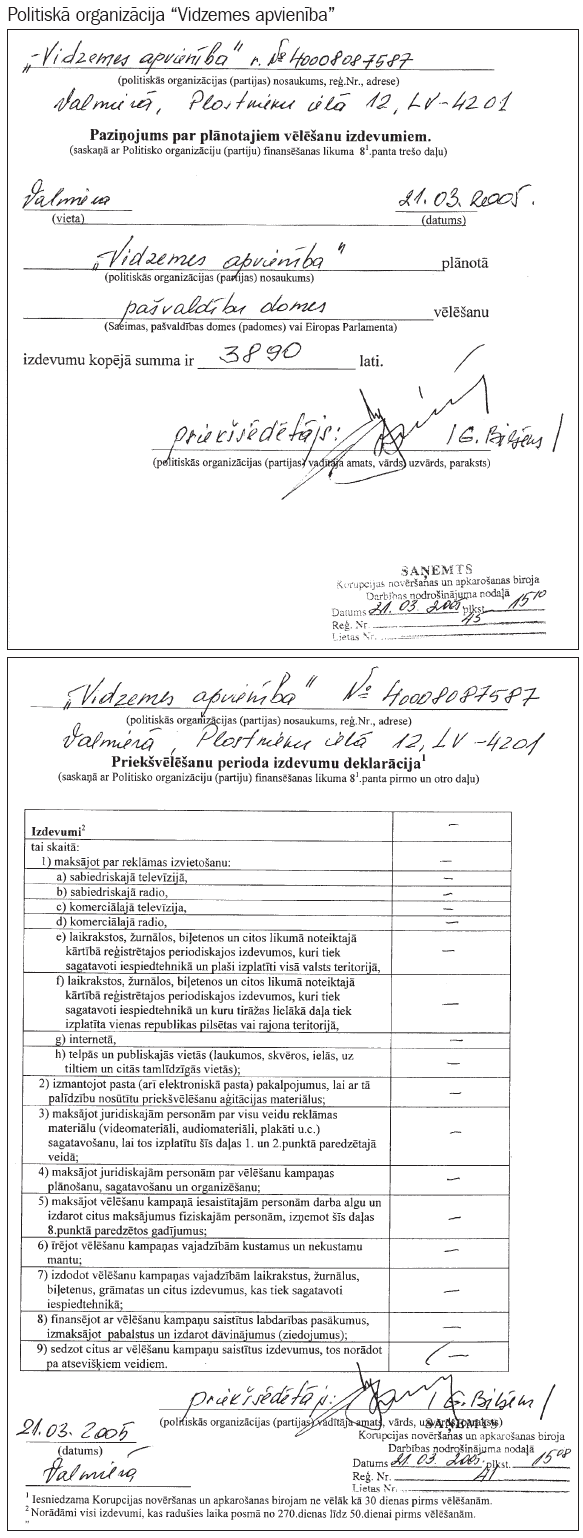 Politiskā organizācija “Vidzemes apvienība”
„Vidzemes apvienība” r. № 40008087587
(politiskās organizācijas (partijas) nosaukums, reģ.Nr., adrese)
Valmierā, Plostnieku ielā 12, LV-4201
Paziņojums par plānotajiem vēlēšanu izdevumiem.
(saskaņā ar Politisko organizāciju (partiju) finansēšanas likuma 8¹.panta trešo daļu)
Valmiera 21.03.2005.
(vieta) (datums)
„Vidzemes apvienība” plānotā
(politiskās organizācijas (partijas) nosaukums)
pašvaldību domes vēlēšanu
(Saeimas, pašvaldības domes (padomes) vai Eiropas Parlamenta)
izdevumu kopējā summa ir 3890 lati.
priekšsēdētājs: /G. Bilsēns/
(politiskās organizācijas (partijas) vadītāja amats, vārds, uzvārds, paraksts)
SAŅEMTS
Korupcijas novēršanas un apkarošanas biroja
Darbības nodrošinājuma nodaļā
Datums 21.03.2005 plkst. 15¹⁰
Reģ. Nr. 45
Lietas Nr.
„Vidzemes apvienība” № 40008087587
(politiskās organizācijas (partijas) nosaukums, reģ.Nr., adrese)
Valmierā, Plostnieku ielā 12, LV-4201
Priekšvēlēšanu perioda izdevumu deklarācija¹
(saskaņā ar Politisko organizāciju (partiju) finansēšanas likuma 8¹.panta pirmo un otro daļu)
Izdevumi² –
tai skaitā:
1) maksājot par reklāmas izvietošanu: –
a) sabiedriskajā televīzijā, –
b) sabiedriskajā radio, –
c) komerciālajā televīzija, –
d) komerciālajā radio, –
e) laikrakstos, žurnālos, biļetenos un citos likumā noteiktajā
kārtībā reģistrētajos periodiskajos izdevumos, kuri tiek
sagatavoti iespiedtehnikā un plaši izplatīti visā valsts teritorijā, –
f) laikrakstos, žurnālos, biļetenos un citos likumā noteiktajā
kārtībā reģistrētajos periodiskajos izdevumos, kuri tiek
sagatavoti iespiedtehnikā un kuru tirāžas lielākā daļa tiek
izplatīta vienas republikas pilsētas vai rajona teritorijā, –
g) internetā, –
h) telpās un publiskajās vietās (laukumos, skvēros, ielās, uz
tiltiem un citās tamlīdzīgās vietās); –
2) izmantojot pasta (arī elektroniskā pasta) pakalpojumus, lai ar tā
palīdzību nosūtītu priekšvēlēšanu aģitācijas materiālus; –
3) maksājot juridiskajām personām par visu veidu reklāmas
materiālu (videomateriāli, audiomateriāli, plakāti u.c.)
sagatavošanu, lai tos izplatītu šīs daļas 1. un 2.punktā paredzētajā
veidā; –
4) maksājot juridiskajām personām par vēlēšanu kampaņas
plānošanu, sagatavošanu un organizēšanu; –
5) maksājot vēlēšanu kampaņā iesaistītajām personām darba algu un
izdarot citus maksājumus fiziskajām personām, izņemot šīs daļas
8.punktā paredzētos gadījumus; –
6) īrējot vēlēšanu kampaņas vajadzībām kustamus un nekustamu
mantu; –
7) izdodot vēlēšanu kampaņas vajadzībām laikrakstus, žurnālus,
biļetenus, grāmatas un citus izdevumus, kas tiek sagatavoti
iespiedtehnikā; –
8) finansējot ar vēlēšanu kampaņu saistītus labdarības pasākumus,
izmaksājot pabalstus un izdarot dāvinājumus (ziedojumus); –
9) sedzot citus ar vēlēšanu kampaņu saistītus izdevumus, tos norādot
pa atsevišķiem veidiem. –
priekšsēdētājs: /G. Bilsēns/
(politiskās organizācijas (partijas) vadītāja amats, vārds, uzvārds, paraksts)
21.03.2005
(datums)
Valmierā
SAŅEMTS
Korupcijas novēršanas un apkarošanas biroja
Darbības nodrošinājuma nodaļā
Datums 21.03.2005 plkst. 15⁰⁸
Reģ. Nr. 41
Lietas Nr.
¹ Iesniedzama Korupcijas novēršanas un apkarošanas birojam ne vēlāk kā 30 dienas pirms vēlēšanām.
² Norādāmi visi izdevumi, kas radušies laika posmā no 270.dienas līdz 50.dienai pirms vēlēšanām.